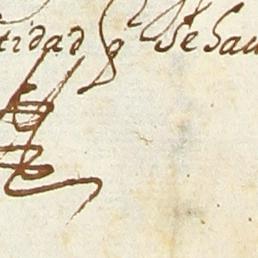 tidad q Se hau